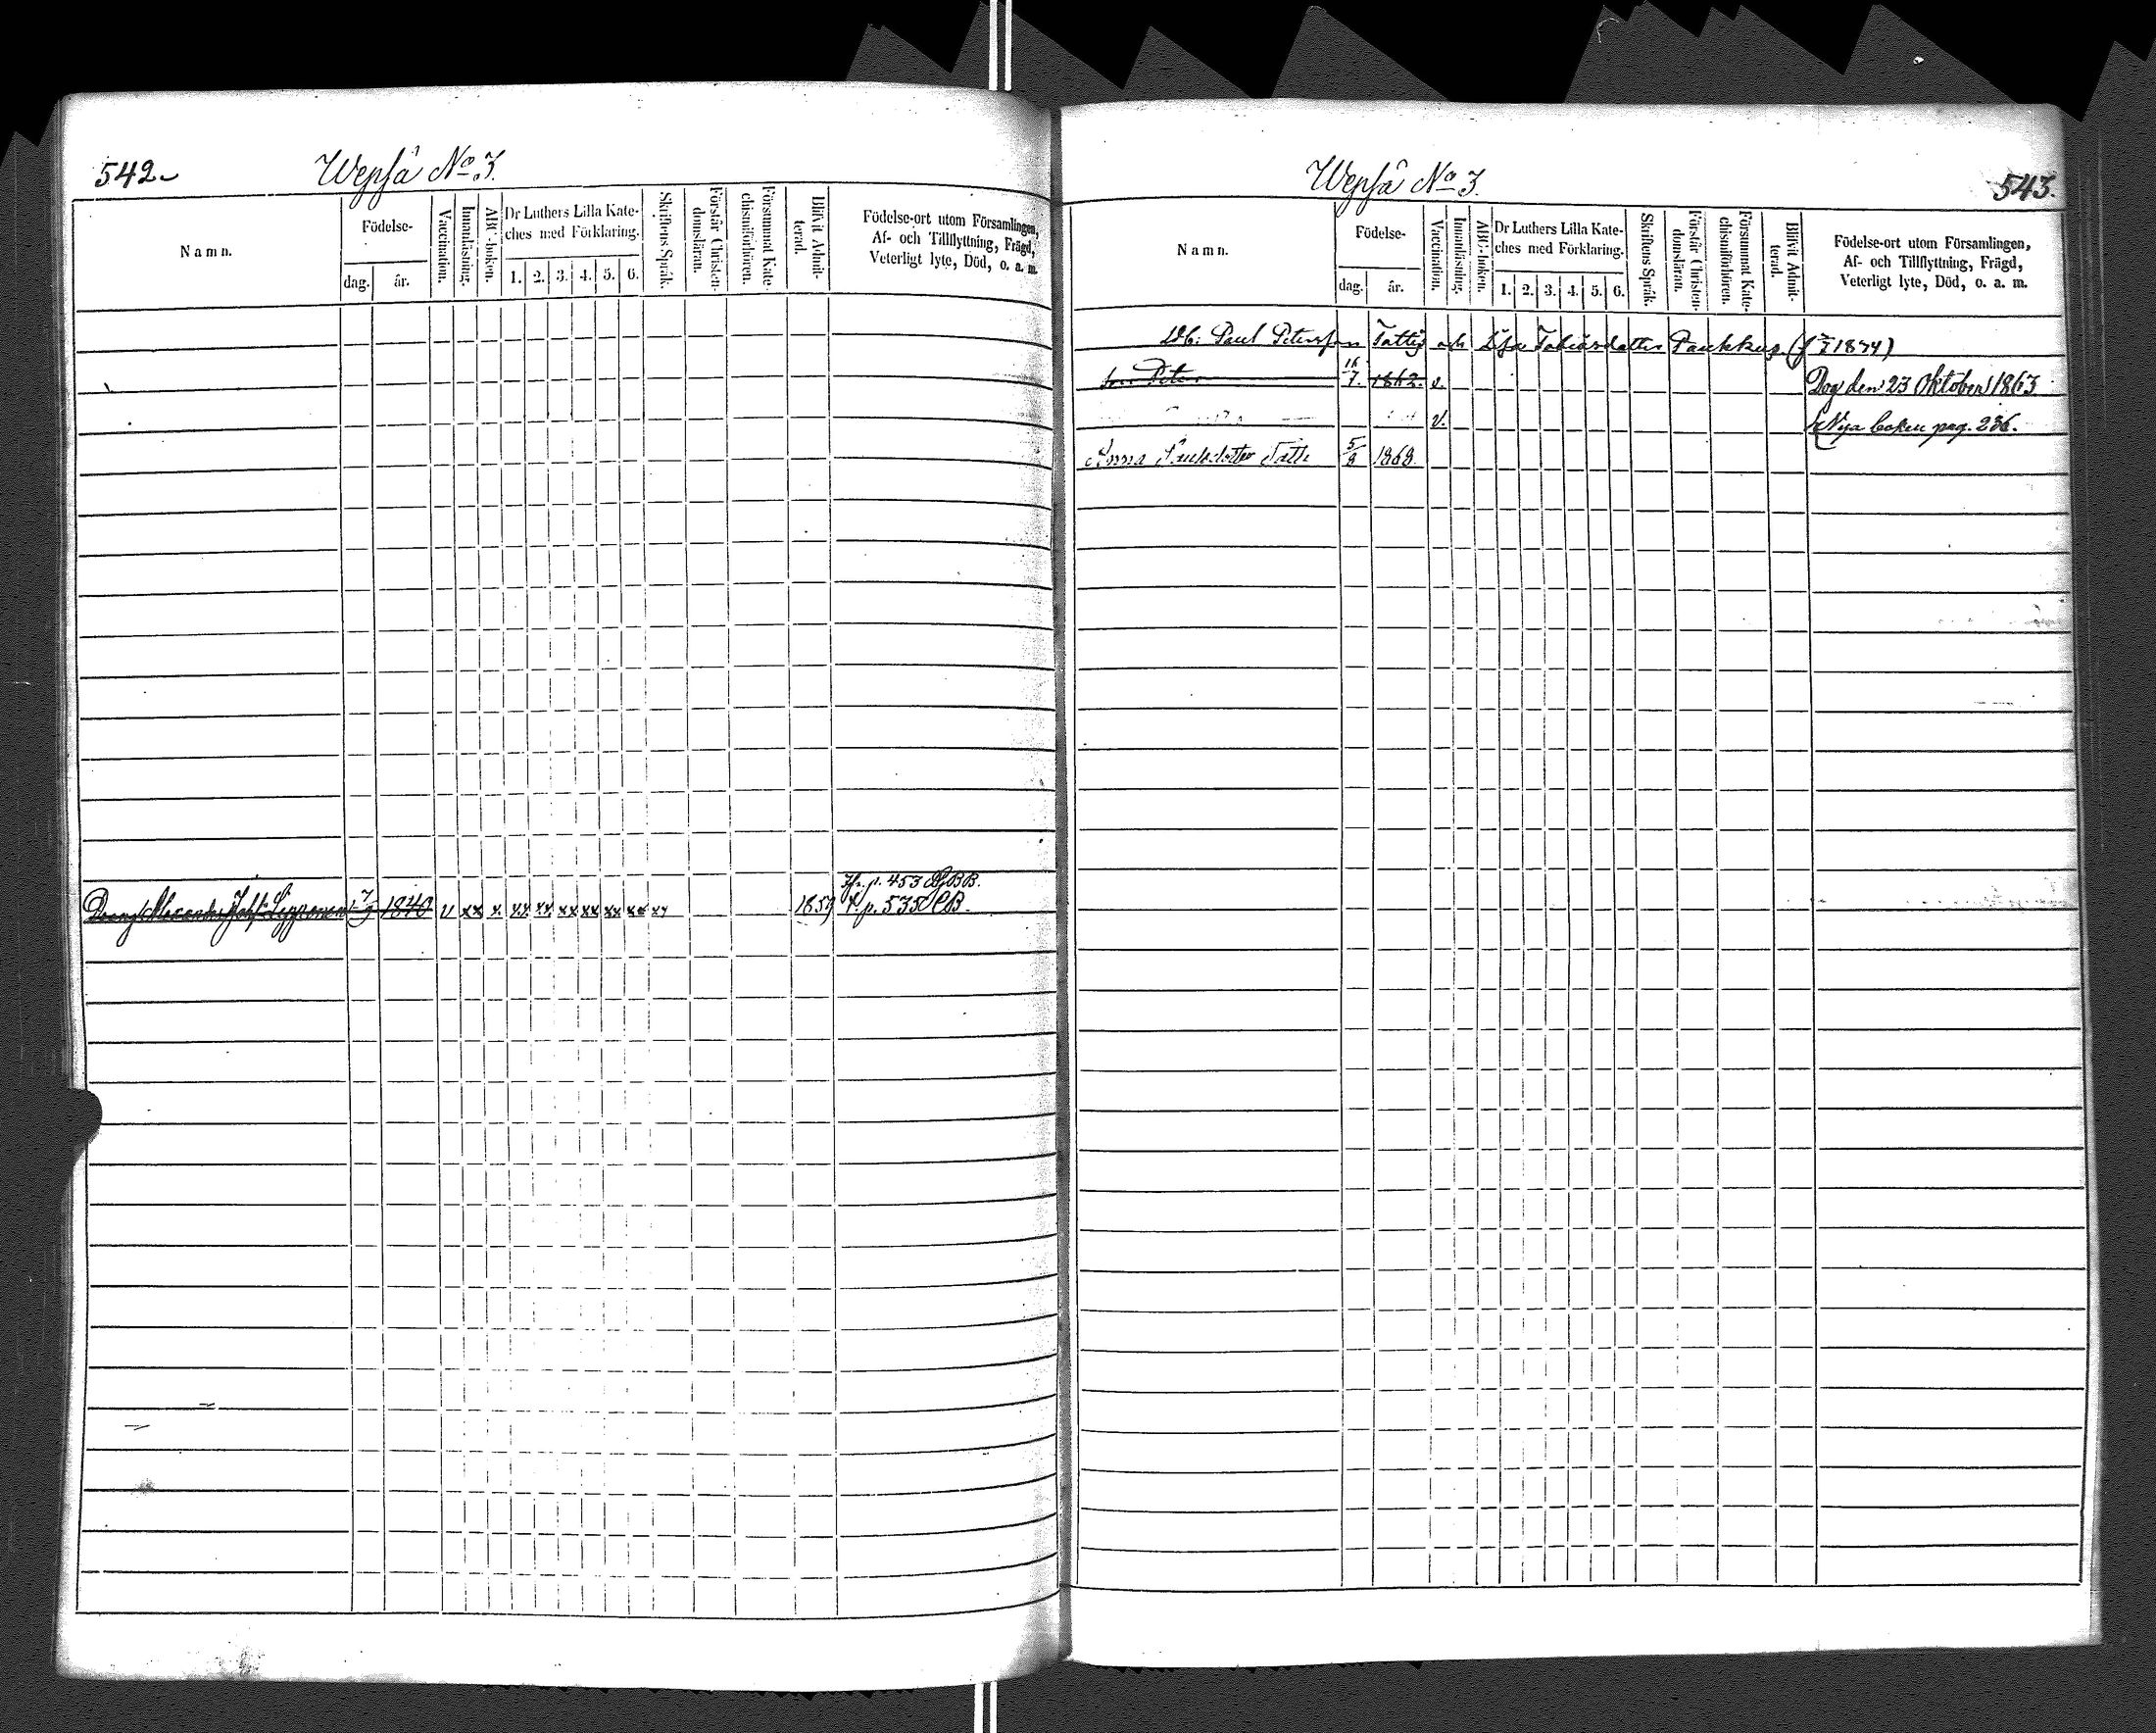 542
Wepsä No 3.
Namn.
Födelse-
dag. år.
Vaccination.
Innanläsning.
ABC-boken.
Dr Luthers Lilla Kate-
ches med Förklaring.
1. 2. 3. 4. 5. 6.
Skriftens Språk.
Förstår Christen-
domsläran.
Försummat Kate-
chismiförhören.
Blifvit Admit-
terad.
Födelse-ort utom Församlingen,
Af- och Tillflyttning, Frägd,
Veterligt lyte, Död, o. a. m.
p. 453
Alexander Lipponen 7/9 1840 v xx x xx xx xx xx xx xx xx 1859 p. 535
543.
Wepsä No 3.
Namn.
Födelse-
dag. år.
Vaccination.
Innanläsning.
ABC-boken.
Dr Luthers Lilla Kate-
ches med Förklaring.
1. 2. 3. 4. 5. 6.
Skriftens Språk.
Förstår Christen-
domsläran.
Försummat Kate-
chismiförhören.
Blifvit Admit-
terad.
Födelse-ort utom Församlingen,
Af- och Tillflyttning, Frägd,
Veterligt lyte, Död, o. a. m.
Paul Petersson Tattis och Lisa Tobiasdotter Paukkus 1874)
son Peter 16/7. 1862. v. Dog den 23 Oktober 1863
v. Nya boken pag. 236.
Anna Paulsdotter Tatti 5/8 1868.